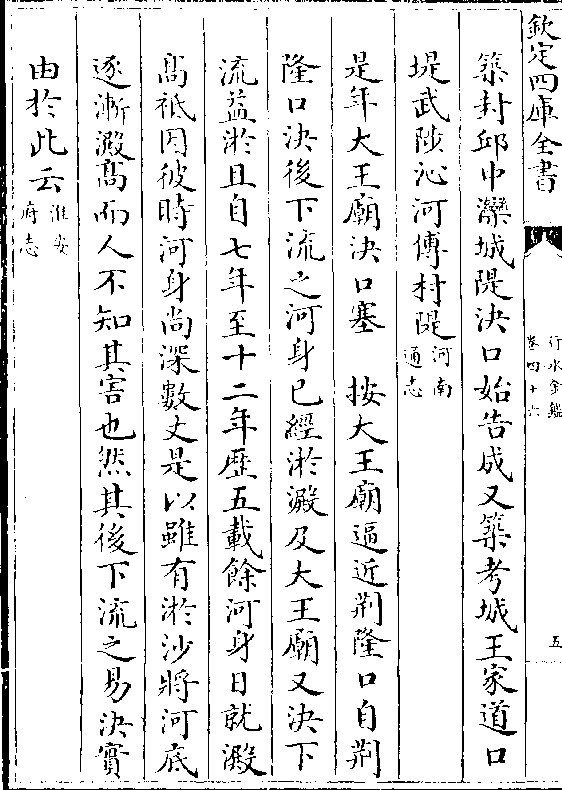 欽定四庫全書
行水金鑑
卷四十六
五
築封邱中灤城隄決口始告成又築考城王家道口
堤武陟沁河傳村隄河南通志
是年大王廟決口塞　按大王廟逼近荆隆口自荆
隆口決後下流之河身已經淤澱及大王廟又決下
流益淤且自七年至十二年歷五載餘河身日就澱
髙祗因彼時河身尚深數丈是以雖有淤沙將河底
逐漸澱髙而人不知其害也然其後下流之易決實
由於此云淮安府志